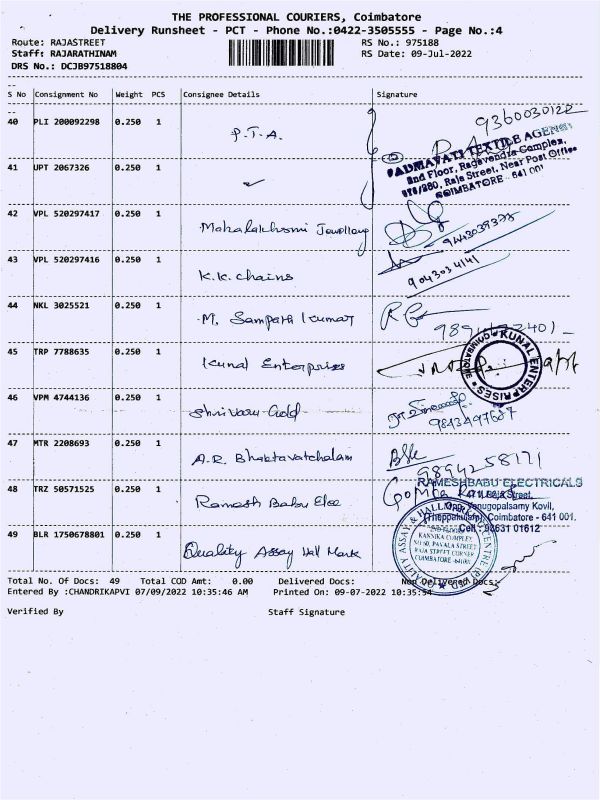 THE PROFESSIONAL COURIERS, Coimbatore
Delivery Runsheet - PCT - Phone No.:0422-3505555 - Page No.:4
Route: RAJASTREET RS No.: 975188
Staff: RAJARATHINAM RS Date: 09-Jul-2022
DRS No.: DCJB97518804
S No Consignment No Weight PCS Consignee Details Signature
40 PLI 200092298 0.250 1 P.T.A. 9360030122
PADMAVATI TEXTILE AGENCY
2nd Floor, Ragavendra Complex,
Raja Street, Near Post Office
COIMBATORE - 641 001
41 UPT 2067326 0.250 1
42 VPL 520297417 0.250 1 Mahalakhsmi Jewellery
43 VPL 520297416 0.250 1 K.K. chains 9043034141
44 NKL 3025521 0.250 1 M. Sampath Kumar
45 TRP 7788635 0.250 1 Kunal Enterprises
KUNAL ENTERPRISES COIMBATORE
46 VPM 4744136 0.250 1 Shrivaru Gold 9843497687
47 MTR 2208693 0.250 1 A.R. Bhaktavatchalam
9894258171
48 TRZ 50571525 0.250 1 Ramesh Babu Elec
RAMESHBABU ELECTRICALS
Raja Street,
Opp. Venugopalsamy Kovil,
(Theppakulam), Coimbatore - 641 001.
Cell : 98631 01612
49 BLR 1750678801 0.250 1 Quality Assay Hall Mark
QUALITY ASSAY & HALL MARKING CENTRE
KANNIKA COMPLEX
RAJA STREET CORNER
COIMBATORE
Total No. Of Docs: 49 Total COD Amt: 0.00 Delivered Docs: Non Delivered Docs:
Entered By :CHANDRIKAPVI 07/09/2022 10:35:46 AM Printed On: 09-07-2022 10:35:54
Verified By Staff Signature